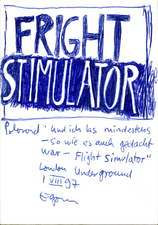 FRIGHT
STIMULATOR
Polaroid "und ich las mindestens
– so wie es auch gedacht
war – Flight Simulator"
London Underground
1 VIII 97